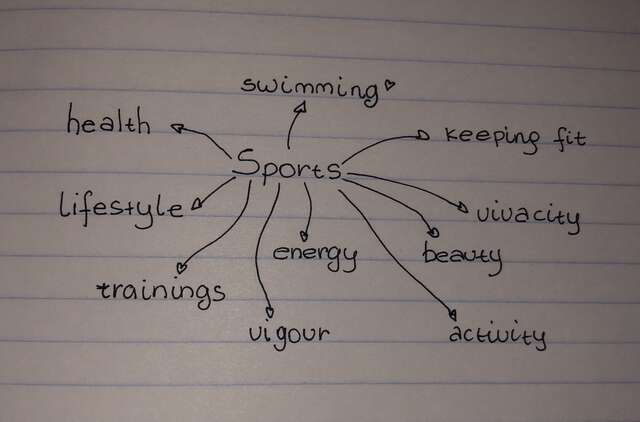 swimming
health
keeping fit
Sports
lifestyle
vivacity
energy
beauty
trainings
vigour
activity